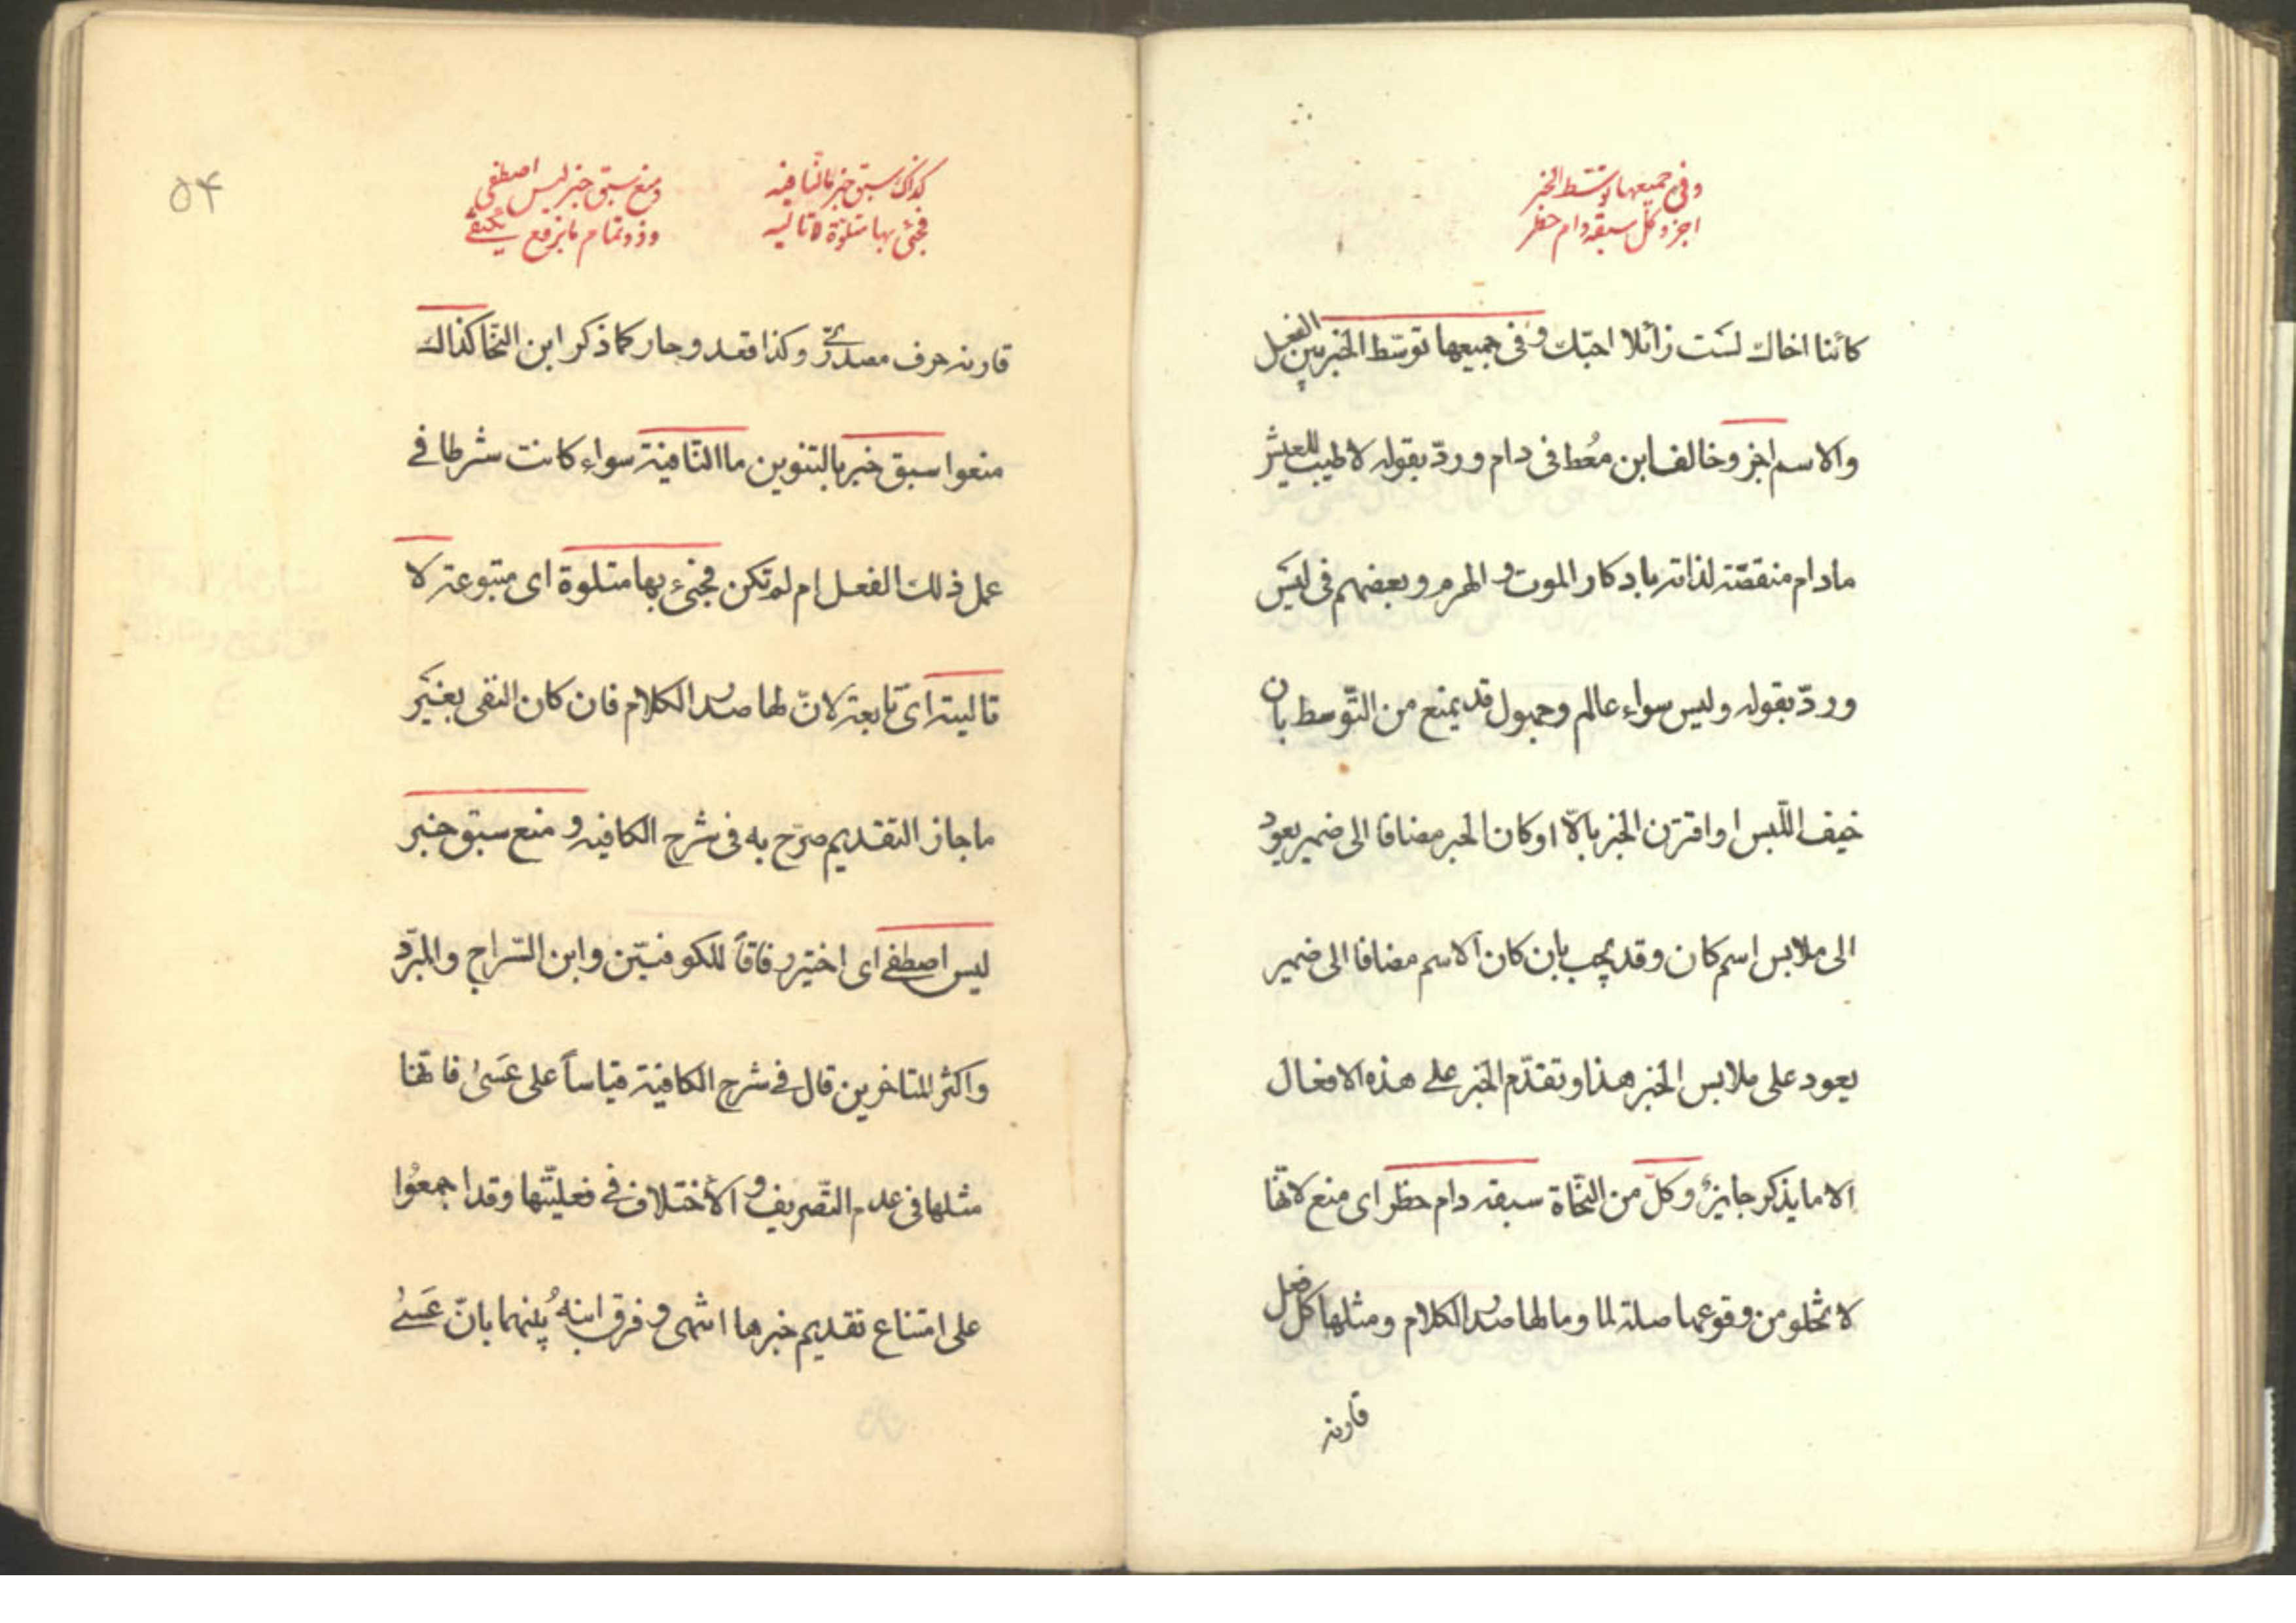 وفی جمیعها توسّط الخبر
اجز وکلّ سبقه دام حظر
کائنا اخاك لست زائلا احبّك و فی جمیعها توسّط الخبر بین الفعل
والاسم اجز وخالف ابن مُعْط فی دام و ردّ بقوله لا طیب للعیش
مادام منغصّته لذاته بادکار الموت و الهرم و بعضهم فی لیس
و ردّ بقوله ولیس سواء عالم وجهول قد یمنع من التّوسط بان
خیف اللّبس او اقترن الخبر بالّا او کان الخبر مضافا الی ضمیر یعود
الی ملابس اسم کان وقد یجب بان کان الاسم مضافا الی ضمیر
یعود علی ملابس الخبر هذا و تقدّم الخبر علی هذه الافعال
الا ما یذکر جایزٌ وکلّ من النّحاة سبقه دام حظر ای منع لانّها
لا تخلو من وقوعها صلة لما وما لها صدر الکلام ومثلها کل فعل
قارنه
۵۴
کذاك سبق خبر ما النّافیه
فجئ بها متلوّة لا تالیه
ومنع سبق خبر لیس اصطفی
وذو تمام ما برفع یکتفی
قارنه حرف مصدریّ وکذا قعد وجار کما ذکر ابن النّحا کذاك
منعوا سبق خبر بالتنوین ما النّافیة سواء کانت شرطا فی
عمل ذلك الفعل ام لم تکن فجئ بها متلوة ای متبوعة لا
تالیة ای تابعة لانّ لها صدر الکلام فان کان النفی بغیر
ما جاز التقدیم صرّح به فی شرح الکافیه و منع سبق خبر
لیس اصطفی ای اختیر وفاقاً للکوفیّین وابن السّراج والمبرّد
واکثر المتاخرین قال فی شرح الکافیة قیاساً علی عَسَی فانّها
مثلها فی عدم التّصریف و الأختلاف فی فعلیّتها وقد اجمعُوا
علی امتناع تقدیم خبرها انتهی و فرق ابنهُ بینهما بانّ عَسَی